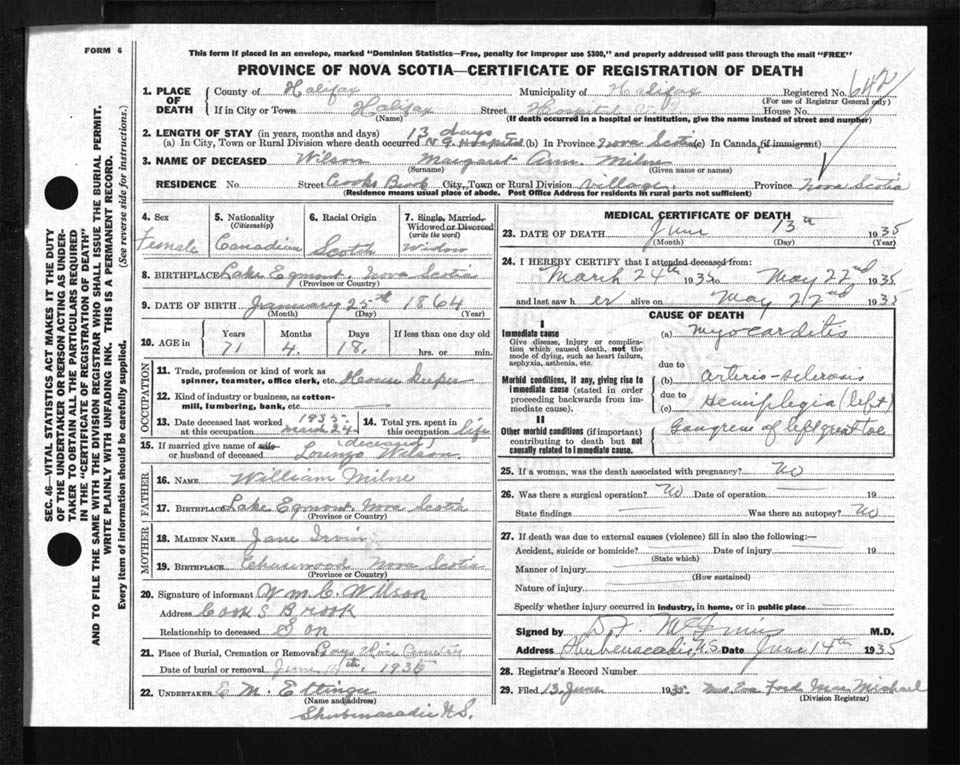 FORM 6
This form if placed in an envelope, marked "Dominion Statistics—Free, penalty for improper use $300," and properly addressed will pass through the mail "FREE"
PROVINCE OF NOVA SCOTIA—CERTIFICATE OF REGISTRATION OF DEATH
SEC. 46—VITAL STATISTICS ACT MAKES IT THE DUTY
OF THE UNDERTAKER OR PERSON ACTING AS UNDER-
TAKER TO OBTAIN ALL THE PARTICULARS REQUIRED
IN THE "CERTIFICATE OF REGISTRATION OF DEATH"
AND TO FILE THE SAME WITH THE DIVISION REGISTRAR WHO SHALL ISSUE THE BURIAL PERMIT.
WRITE PLAINLY WITH UNFADING INK. THIS IS A PERMANENT RECORD.
Every item of information should be carefully supplied. (See reverse side for instructions.)
1. PLACE OF DEATH County of Halifax Municipality of Halifax Registered No. 642
(For use of Registrar General only)
If in City or Town Halifax Street Hospital House No.
(Name) (If death occurred in a hospital or institution, give the name instead of street and number)
2. LENGTH OF STAY (in years, months and days) 13 days
(a) In City, Town or Rural Division where death occurred Hospital (b) In Province Nova Scotia (c) In Canada (if immigrant)
3. NAME OF DECEASED Wilson Margaret Ann Milne
(Surname) (Given name or names)
RESIDENCE No. Street Cooks Brook City, Town or Rural Division Village Province Nova Scotia
(Residence means usual place of abode. Post Office Address for residents in rural parts not sufficient)
4. Sex Female
5. Nationality (Citizenship) Canadian
6. Racial Origin Scotch
7. Single, Married, Widowed or Divorced (write the word) Widow
8. BIRTHPLACE Lake Egmont, Nova Scotia
(Province or Country)
9. DATE OF BIRTH January 25th 1864
(Month) (Day) (Year)
10. AGE in Years 71 Months 4 Days 18 If less than one day old hrs. or min.
OCCUPATION
11. Trade, profession or kind of work as spinner, teamster, office clerk, etc. House Keeper
12. Kind of industry or business, as cotton-mill, lumbering, bank, etc. —
13. Date deceased last worked at this occupation 1935 March 24
14. Total yrs. spent in this occupation life
15. If married give name of wife or husband of deceased (deceased) Lorenzo Wilson
FATHER
16. NAME William Milne
17. BIRTHPLACE Lake Egmont, Nova Scotia
(Province or Country)
MOTHER
18. MAIDEN NAME Jane Irvin
19. BIRTHPLACE Nova Scotia
(Province or Country)
20. Signature of informant Wm. C. Wilson
Address Cook S. Brook
Relationship to deceased Son
21. Place of Burial, Cremation or Removal Cemetery
Date of burial or removal June 14th, 1935
22. UNDERTAKER E M. Ettinger
(Name and address)
Shubenacadie N S.
MEDICAL CERTIFICATE OF DEATH
23. DATE OF DEATH June 13th 1935
(Month) (Day) (Year)
24. I HEREBY CERTIFY that I attended deceased from:
March 24th 1935 to May 22nd 1935
and last saw h er alive on May 22nd 1935
CAUSE OF DEATH
I
Immediate cause
Give disease, injury or complication which caused death, not the mode of dying, such as heart failure, asphyxia, asthenia, etc.
(a) Myocarditis
due to
Morbid conditions, if any, giving rise to immediate cause (stated in order proceeding backwards from immediate cause).
(b) Arterio-sclerosis
due to
(c) Hemiplegia (left)
II
Other morbid conditions (if important) contributing to death but not causally related to immediate cause.
Gangrene of left great toe
25. If a woman, was the death associated with pregnancy? No
26. Was there a surgical operation? No Date of operation 19
State findings Was there an autopsy? No
27. If death was due to external causes (violence) fill in also the following:—
Accident, suicide or homicide? Date of injury 19
(State which)
Manner of injury
(How sustained)
Nature of injury
Specify whether injury occurred in industry, in home, or in public place
Signed by M.D.
Address Shubenacadie, N.S. Date June 14th 1935
28. Registrar's Record Number
29. Filed 13 June 1935 Mrs Eva Ford
(Division Registrar)